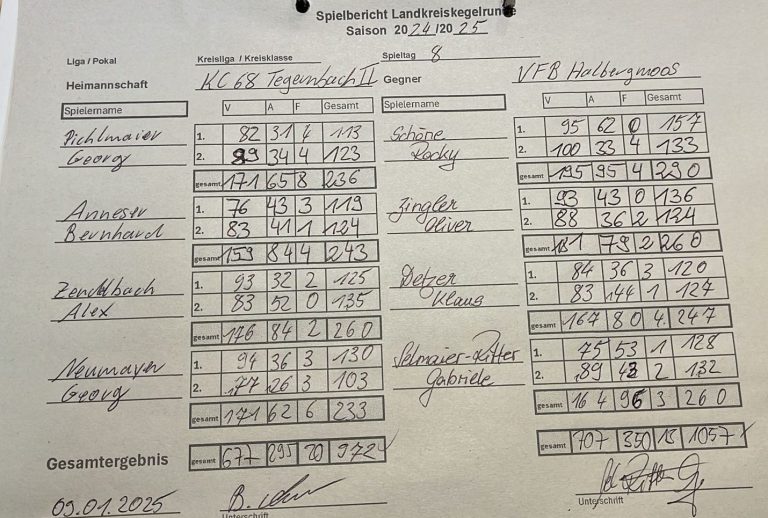 Spielbericht Landkreiskegelrunde
Saison 2024/2025
Liga / Pokal Kreisliga / Kreisklasse Spieltag 8
Heimannschaft KC 68 Tegernbach II Gegner VFB Hallbergmoos
Spielername V A F Gesamt Spielername V A F Gesamt
Pichlmaier 1. 82 31 4 113 Schöne 1. 95 62 0 157
Georg 2. 89 34 4 123 Rocky 2. 100 33 4 133
gesamt 171 65 8 236 gesamt 195 95 4 290
Anneser 1. 76 43 3 119 Zingler 1. 93 43 0 136
Bernhard 2. 83 41 1 124 Oliver 2. 88 36 2 124
gesamt 159 84 4 243 gesamt 181 79 2 260
Zendlbach 1. 93 32 2 125 Detzer 1. 84 36 3 120
Alex 2. 83 52 0 135 Klaus 2. 83 44 1 127
gesamt 176 84 2 260 gesamt 167 80 4 247
Neumayer 1. 94 36 3 130 Selmaier-Ritter 1. 75 53 1 128
Georg 2. 77 26 3 103 Gabriele 2. 89 43 2 132
gesamt 171 62 6 233 gesamt 164 96 3 260
Gesamtergebnis gesamt 677 295 20 972 gesamt 707 350 13 1057
09.01.2025
Unterschrift Unterschrift